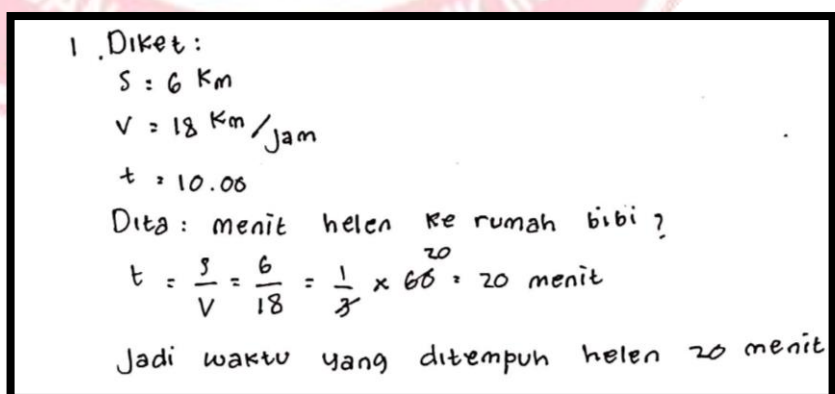 1. Diket:
S = 6 Km
V = 18 Km/Jam
t = 10.00
Dita : menit helen ke rumah bibi ?
t = S/V = 6/18 = 1/3 x 60 20 = 20 menit
Jadi waktu yang ditempuh helen 20 menit